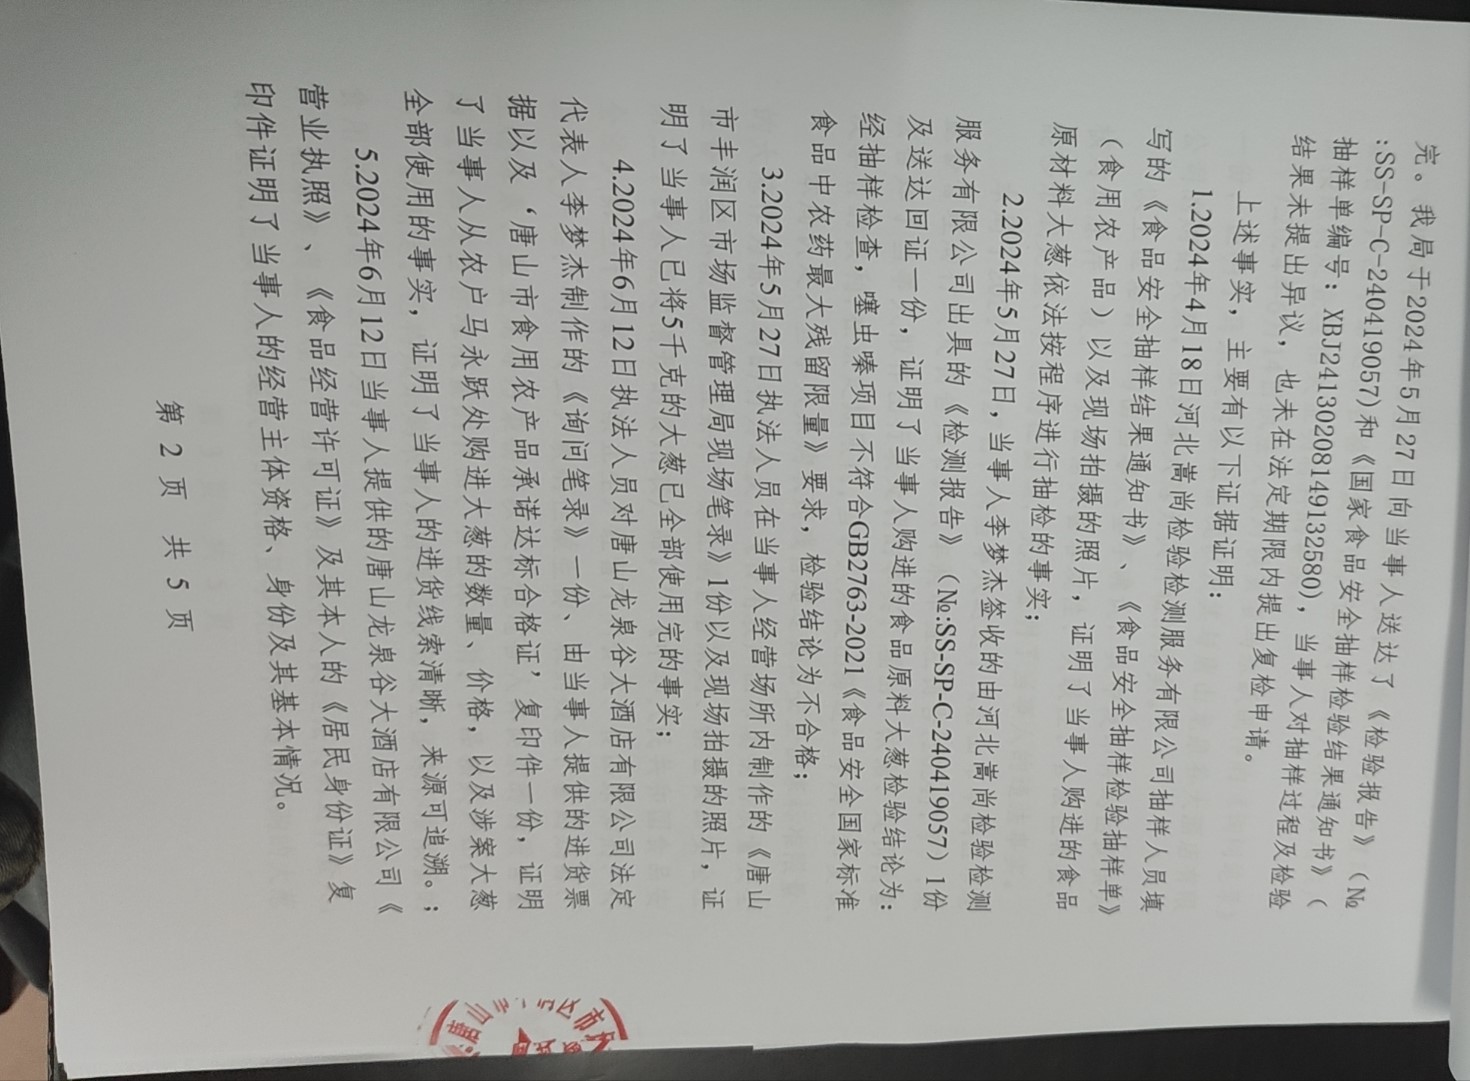 完。我局于2024年5月27日向当事人送达了《检验报告》（№
:SS-SP-C-240419057)和《国家食品安全抽样检验结果通知书》（
抽样单编号：XBJ24130208149132580)，当事人对抽样过程及检验
结果未提出异议，也未在法定期限内提出复检申请。
上述事实，主要有以下证据证明：
1.2024年4月18日河北嵩尚检验检测服务有限公司抽样人员填
写的《食品安全抽样结果通知书》、《食品安全抽样检验抽样单》
（食用农产品）以及现场拍摄的照片，证明了当事人购进的食品
原材料大葱依法按程序进行抽检的事实；
2.2024年5月27日,当事人李梦杰签收的由河北嵩尚检验检测
服务有限公司出具的《检测报告》（№:SS-SP-C-240419057）1份
及送达回证一份，证明了当事人购进的食品原料大葱检验结论为：
经抽样检查，噻虫嗪项目不符合GB2763-2021《食品安全国家标准
食品中农药最大残留限量》要求，检验结论为不合格；
3.2024年5月27日执法人员在当事人经营场所内制作的《唐山
市丰润区市场监督管理局现场笔录》1份以及现场拍摄的照片，证
明了当事人已将5千克的大葱已全部使用完的事实；
4.2024年6月12日执法人员对唐山龙泉谷大酒店有限公司法定
代表人李梦杰制作的《询问笔录》一份、由当事人提供的进货票
据以及‘唐山市食用农产品承诺达标合格证’复印件一份，证明
了当事人从农户马永跃处购进大葱的数量、价格，以及涉案大葱
全部使用的事实，证明了当事人的进货线索清晰，来源可追溯。；
5.2024年6月12日当事人提供的唐山龙泉谷大酒店有限公司《
营业执照》、《食品经营许可证》及其本人的《居民身份证》复
印件证明了当事人的经营主体资格、身份及其基本情况。
第 2 页 共 5 页